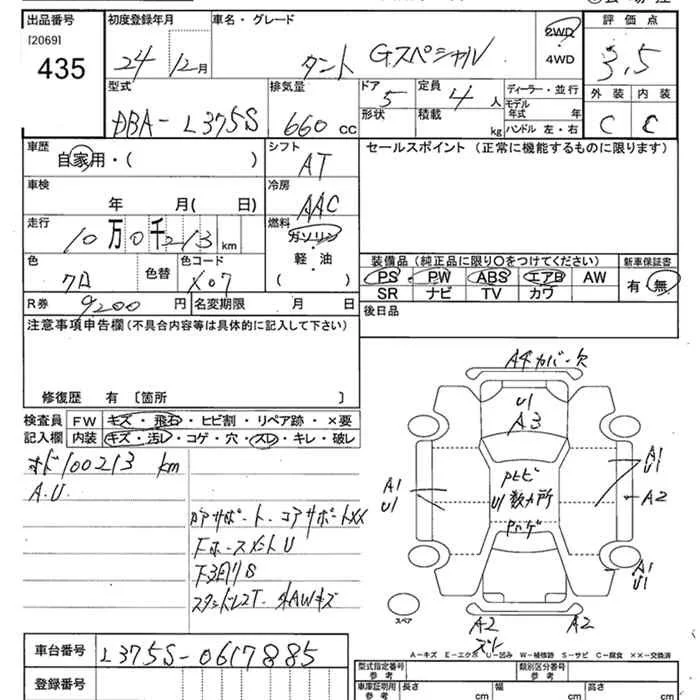 出品番号 初度登録年月 車名・グレード 評価点
[2069] 435 24年12月 タント Gスペシャル 2WD・4WD 3.5
型式 排気量 ドア 5 定員 4人 ディーラー・並行 外装 内装
DBA-L375S 660cc 形状 積載 kg モデル年式 年 ハンドル 左・右 C C
車歴 シフト セールスポイント (正常に機能するものに限ります)
自家用・( ) AT
車検 冷房
年 月( 日) AAC
走行 燃料
10万0千213km ガソリン
色 色替 色コード 軽・油 装備品 (純正品に限り○をつけてください) 新車保証書
X07 ( ) PS PW ABS エアB AW 有・無
R券 9200円 名変期限 月 日 SR ナビ TV カワ
注意事項申告欄(不具合内容等は具体的に記入して下さい) 後日品
修復歴 有 〔箇所 〕
検査員 FW キズ・飛石・ヒビ割・リペア跡・×要
記入欄 内装 キズ・汚レ・コゲ・穴・スレ・キレ・破レ
100213 km
A.U
コアサポートXX
U
S
A4カバー欠
U1
A3
U1数カ所
A1
U1
A1
U1
A2
A1
U1
スペア
A2 A2
ズレ
車台番号 L375S-0617885
登録番号
A-キズ E-エクボ U-凹み W-補修跡 S-サビ C-腐食 XX-交換済
型式指定番号 参考 類別区分番号 参考
車庫証明用 参考 長さ cm 幅 cm 高さ cm